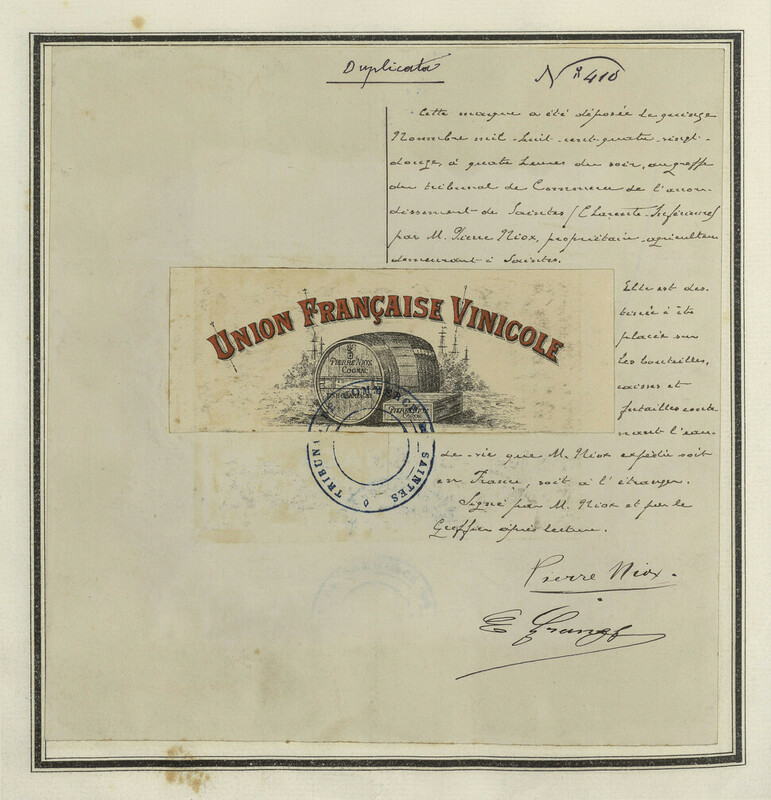 Duplicata
N° 410
Cette marque a été déposée le quinze
Novembre mil-huit-cent-quatre-vingt-
douze, à quatre heures du soir, au greffe
du tribunal de Commerce de l'arron-
dissement de Saintes (Charente-Inférieure)
par M. Pierre Niox, propriétaire-agriculteur
demeurant à Saintes.
Elle est des-
tinée à être
placée sur
les bouteilles,
caisses et
futailles conte-
nant l'eau-
de-vie que M. Niox expédie soit
en France, soit à l'étranger.
Signé par M. Niox et par le
Greffier après lecture.
UNION FRANÇAISE VINICOLE
PIERRE NIOX
COGNAC
TRIBUNAL DE COMMERCE
SAINTES
Pierre Niox.